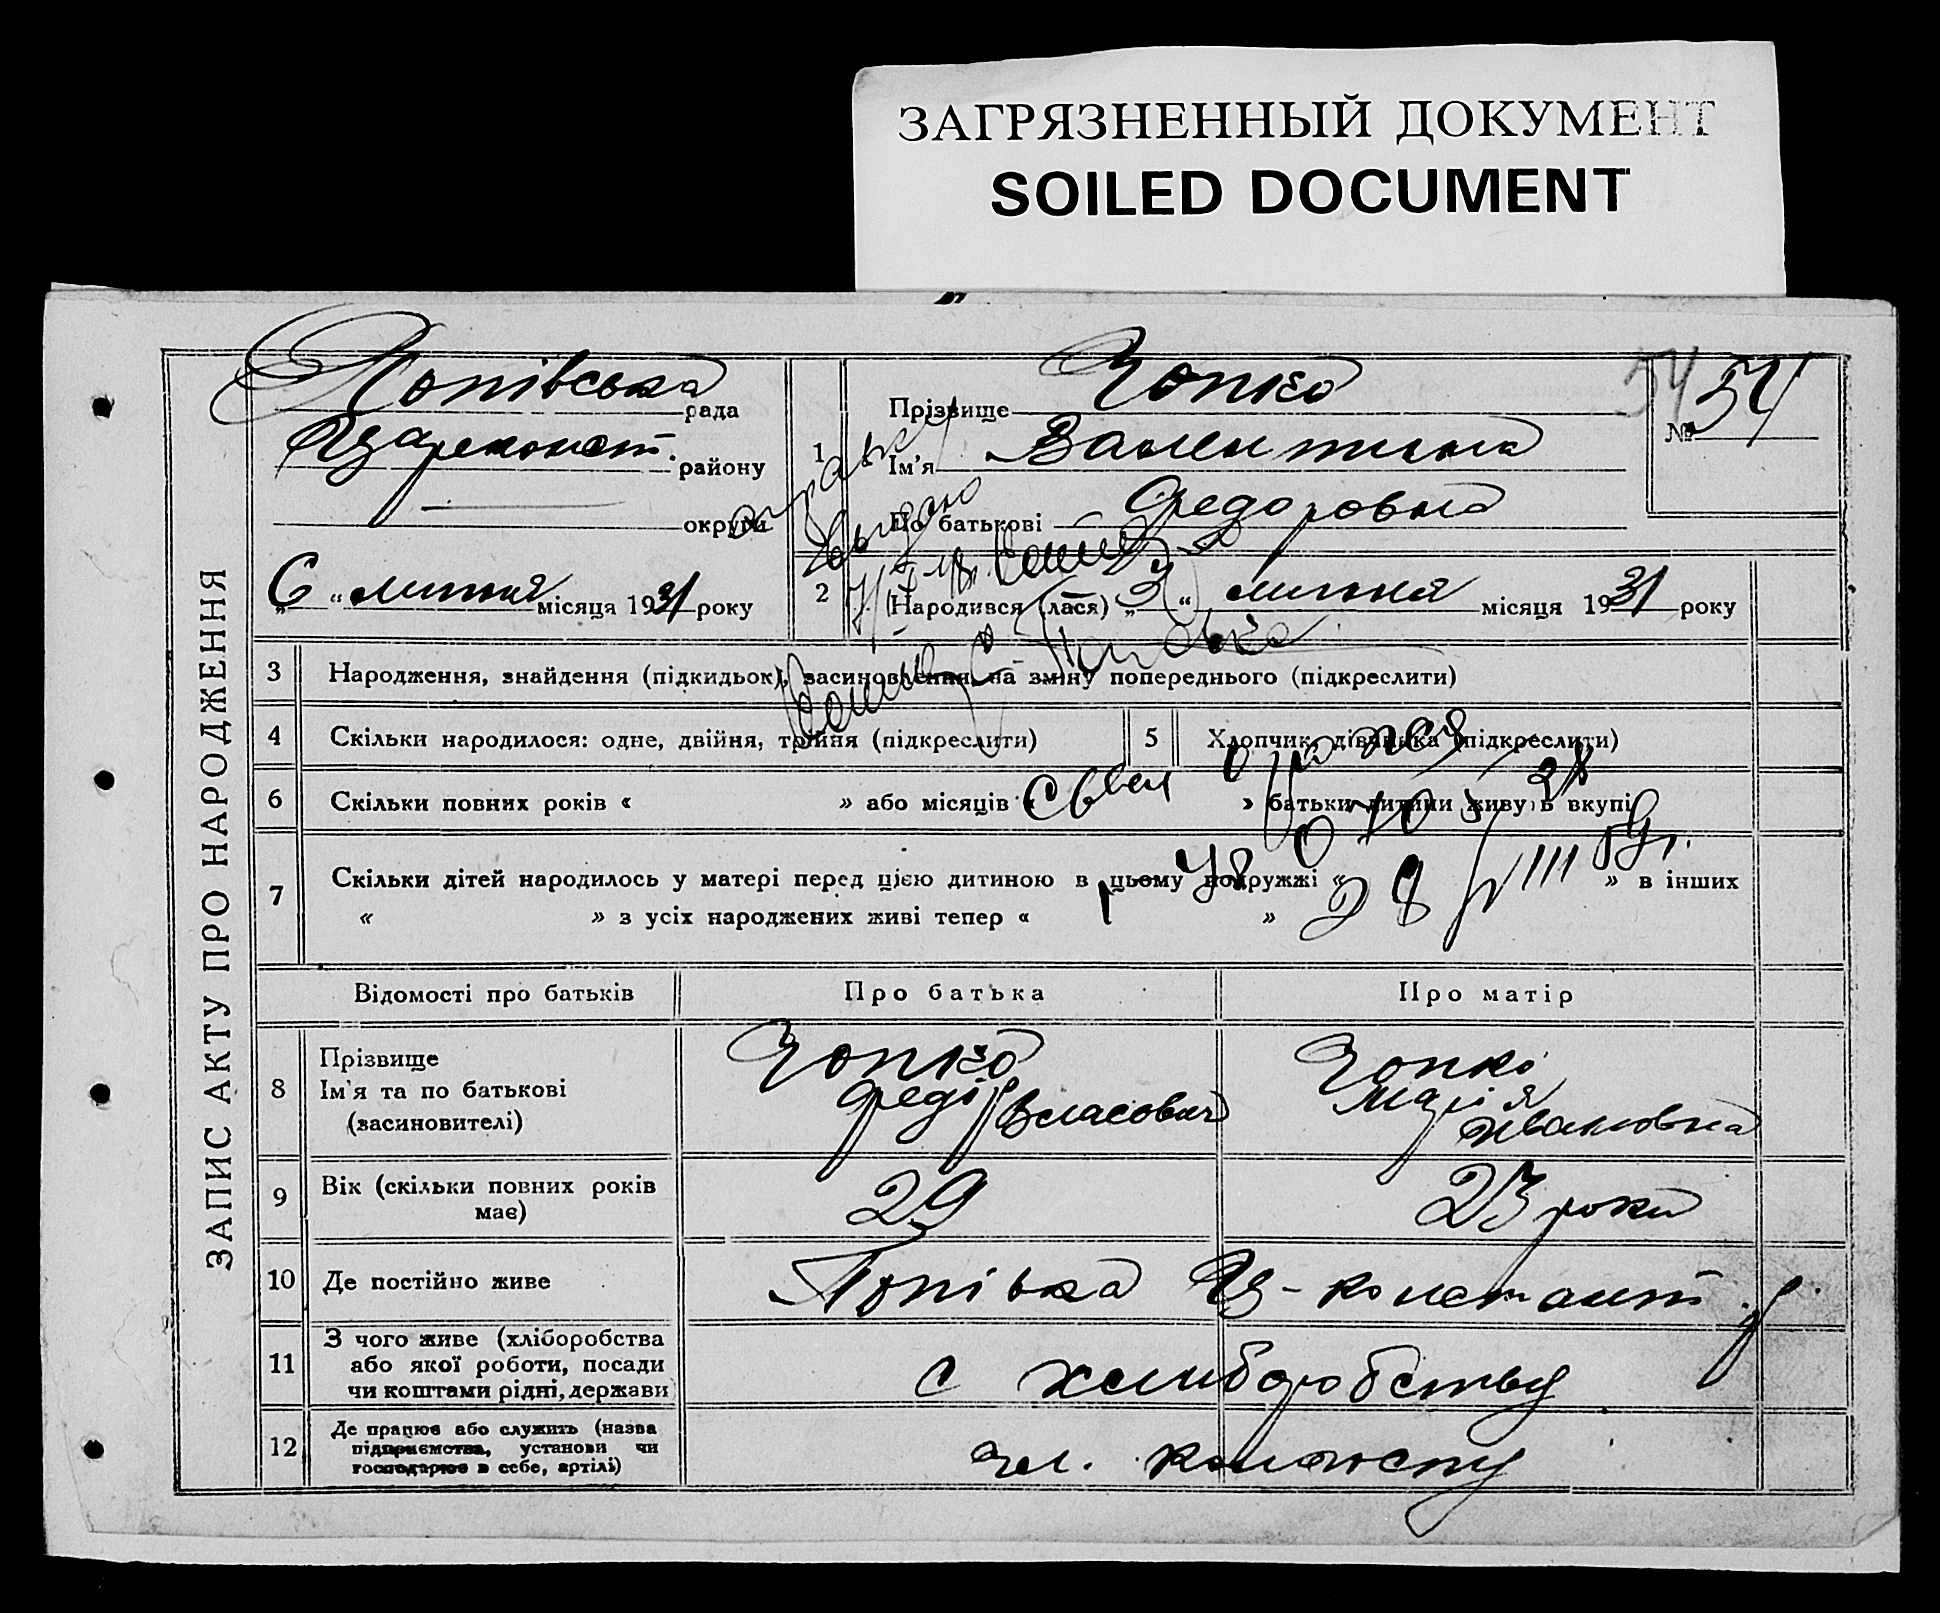 ЗАГРЯЗНЕННЫЙ ДОКУМЕНТ
SOILED DOCUMENT
ЗАПИС АКТУ ПРО НАРОДЖЕННЯ
Попівська рада
району
округи
6 липня місяця 1931 року
54
№ 54
1 Прізвище Чопко
Ім'я Валентина
По батькові Федоровна
2 Народився (лася) „3“ липня місяця 1931 року
3 Народження, знайдення (підкидьок), засиновлення на зміну попереднього (підкреслити)
4 Скільки народилося: одне, двійня, трійня (підкреслити)
5 Хлопчик, дівчинка (підкреслити)
6 Скільки повних років « » або місяців « » батьки дитини живуть вкупі
7 Скільки дітей народилось у матері перед цією дитиною в цьому подружжі « » в інших
« » з усіх народжених живі тепер « »
Відомості про батьків Про батька Про матір
8 Прізвище Чопко Чопко
Ім'я та по батькові Федір Власович Марія Ивановна
(засиновителі)
9 Вік (скільки повних років має) 29 23 роки
10 Де постійно живе Попівка Ц-констант р.
11 З чого живе (хліборобства
або якої роботи, посади
чи коштами рідні, держави
с хлиборобству
12 Де працює або служить (назва
підприємства, установи чи
господарює в себе, артілі)
чл. колгоспу